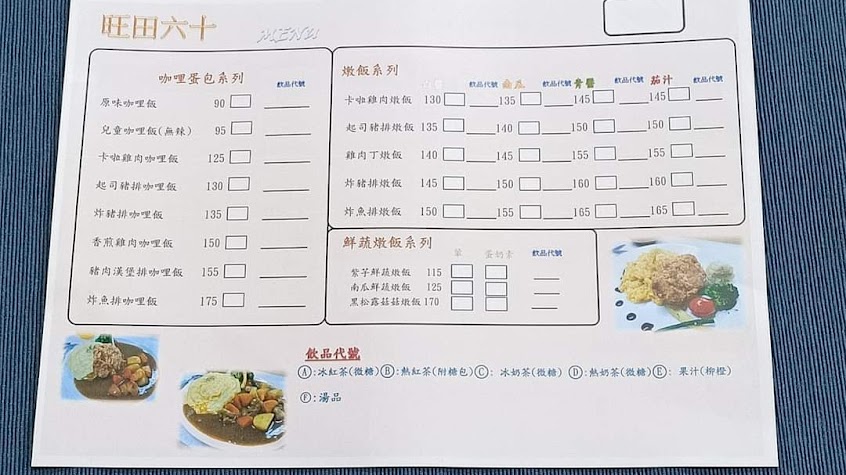 旺田六十 MENU
咖哩蛋包系列 飲品代號
原味咖哩飯 90
兒童咖哩飯(無辣) 95
卡啦雞肉咖哩飯 125
起司豬排咖哩飯 130
炸豬排咖哩飯 135
香煎雞肉咖哩飯 150
豬肉漢堡排咖哩飯 155
炸魚排咖哩飯 175
燉飯系列
飲品代號 南瓜 飲品代號 青醬 飲品代號 茄汁 飲品代號
卡啦雞肉燉飯 130 135 145 145
起司豬排燉飯 135 140 150 150
雞肉丁燉飯 140 145 155 155
炸豬排燉飯 145 150 160 160
炸魚排燉飯 150 155 165 165
鮮蔬燉飯系列
蛋奶素 飲品代號
紫芋鮮蔬燉飯 115
南瓜鮮蔬燉飯 125
黑松露菇菇燉飯 170
飲品代號
Ⓐ:冰紅茶(微糖) Ⓑ:熱紅茶(附糖包) Ⓒ: 冰奶茶(微糖) Ⓓ:熱奶茶(微糖) Ⓔ: 果汁(柳橙)
Ⓕ:湯品